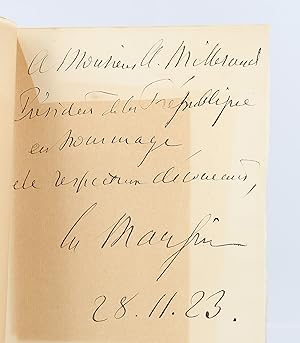 A Monsieur A. Millerand
Président de la République
en hommage
de respectueux dévouement,
Ch Mangin
28.11.23.